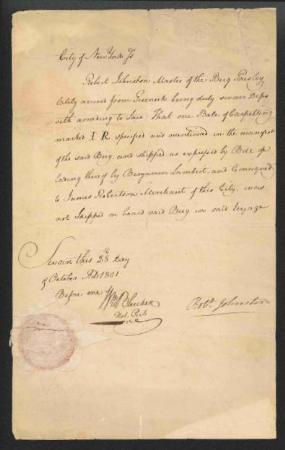 City of New York Ss
Robert Johnston Master of the Brig Paisley
lately arrived from Greenock being duly sworn Depo
seth according to Law That one Bale of Carpetting
marked I R. specified and mentioned in the manifest
of the said Brig and shipped as expressed by Bill of
Lading thereof by Benjamin Lambert, and Consigned
to James Robertson Merchant of this City, was
not Shipped on board said Brig on said Voyage
Sworn this 28 day
of October AD 1801
Before me
Wm
Not. Pub
Robt. Johnston